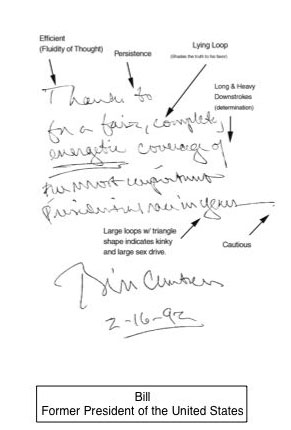 Efficient
(Fluidity of Thought)
Persistence
Lying Loop
(Shades the truth to his favor)
Long & Heavy
Downstrokes
(determination)
Thanks to
for a fair, complete,
energetic coverage of
the most important
Presidential race in years
Large loops w/ triangle
shape indicates kinky
and large sex drive.
Cautious
Bill Clinton
2-16-92
Bill
Former President of the United States